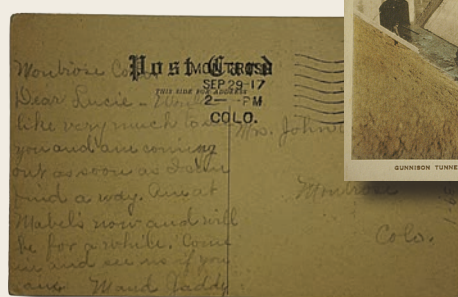 Post Card
THIS SIDE FOR ADDRESS
MONTROSE
SEP 29-17
2— -PM
COLO.
Montrose Colo.
Dear Lucie – Would
like very much to see
you and am coming
out as soon as I can
find a way. Am at
Mabel's now and will
be for a while. Come
in and see us if you
can. Maud Vaddy
Mrs. John
Montrose
Colo.
GUNNISON TUNNE